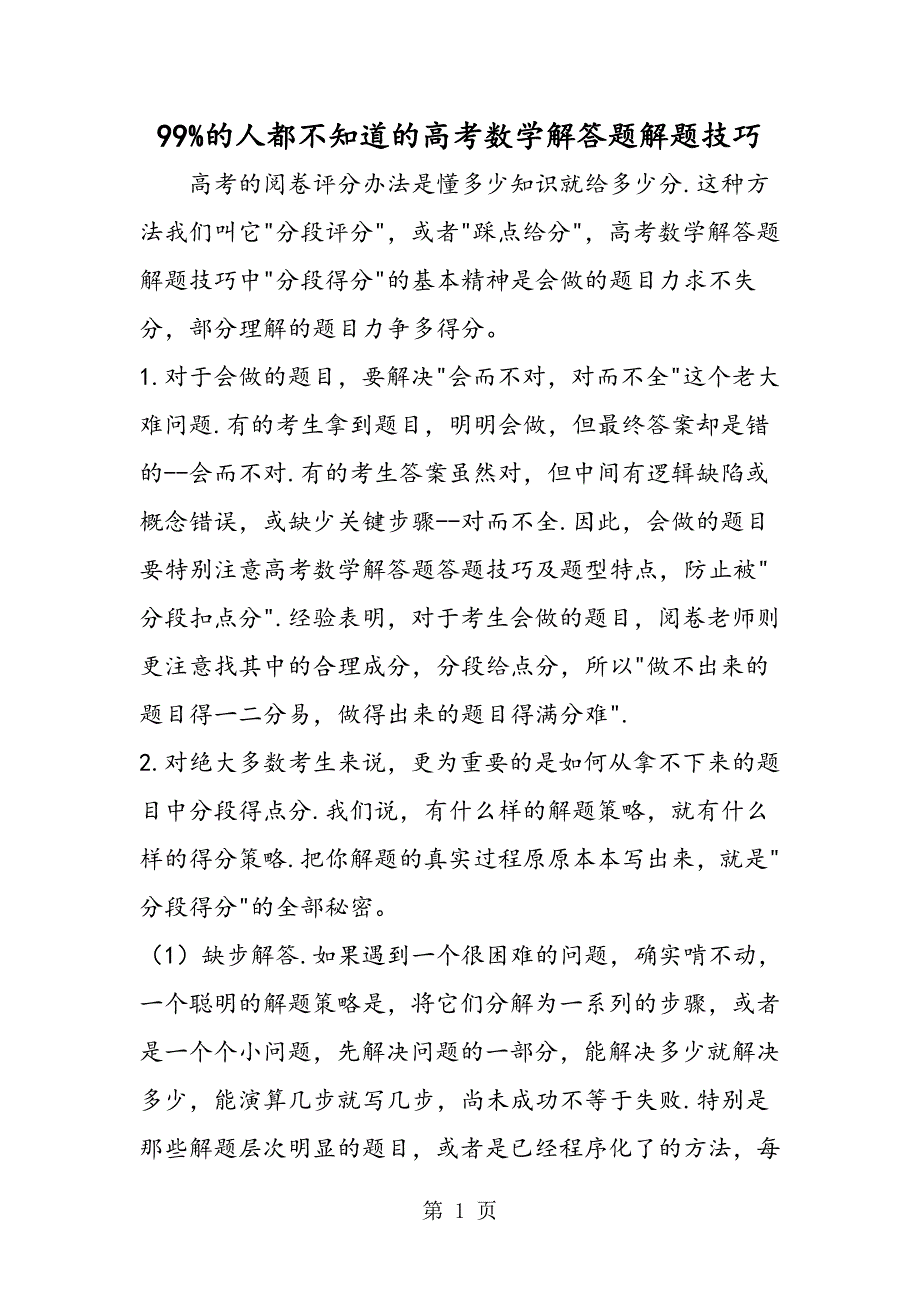 99%的人都不知道的高考数学解答题解题技巧
高考的阅卷评分办法是懂多少知识就给多少分.这种方
法我们叫它"分段评分"，或者"踩点给分"，高考数学解答题
解题技巧中"分段得分"的基本精神是会做的题目力求不失
分，部分理解的题目力争多得分。
1.对于会做的题目，要解决"会而不对，对而不全"这个老大
难问题.有的考生拿到题目，明明会做，但最终答案却是错
的--会而不对.有的考生答案虽然对，但中间有逻辑缺陷或
概念错误，或缺少关键步骤--对而不全.因此，会做的题目
要特别注意高考数学解答题答题技巧及题型特点，防止被"
分段扣点分".经验表明，对于考生会做的题目，阅卷老师则
更注意找其中的合理成分，分段给点分，所以"做不出来的
题目得一二分易，做得出来的题目得满分难".
2.对绝大多数考生来说，更为重要的是如何从拿不下来的题
目中分段得点分.我们说，有什么样的解题策略，就有什么
样的得分策略.把你解题的真实过程原原本本写出来，就是"
分段得分"的全部秘密。
（1）缺步解答.如果遇到一个很困难的问题，确实啃不动，
一个聪明的解题策略是，将它们分解为一系列的步骤，或者
是一个个小问题，先解决问题的一部分，能解决多少就解决
多少，能演算几步就写几步，尚未成功不等于失败.特别是
那些解题层次明显的题目，或者是已经程序化了的方法，每
第 1 页